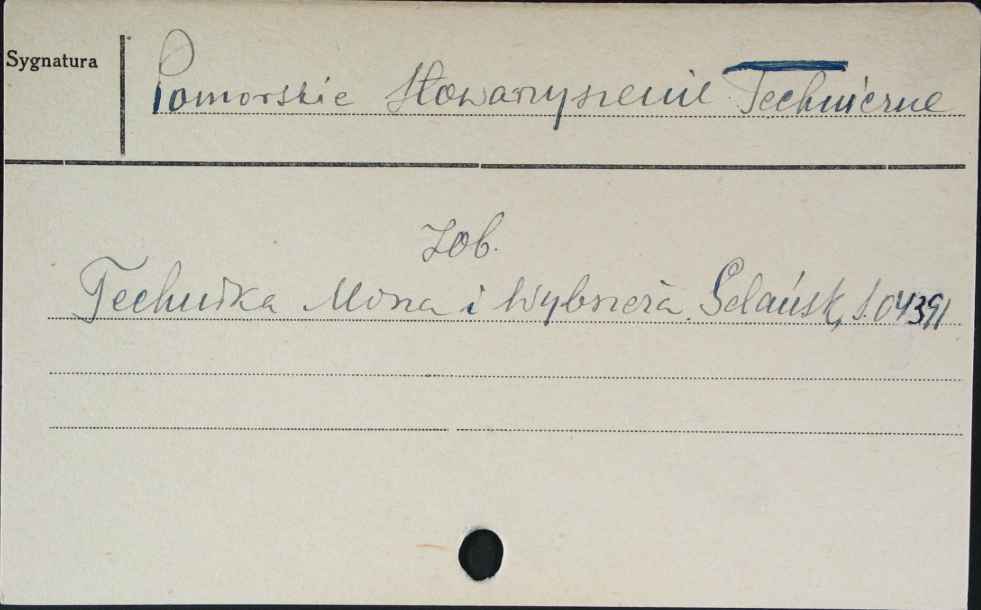 Sygnatura
Pomorskie Stowarzyszenie Techniczne
Zob.
Technika Morza i Wybrzeża. Gdańsk, S.04391